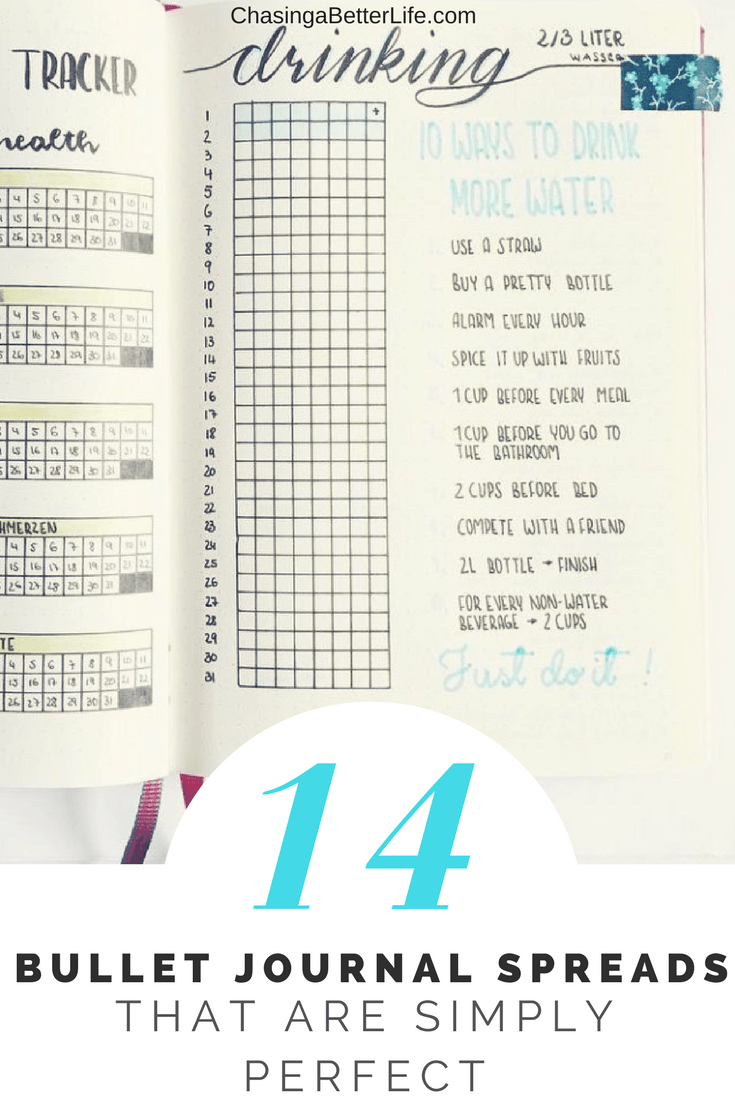 ChasingaBetterLife.com
TRACKER
health
4 5 6 7 8 9 10 11
15 16 17 18 19 20 21 22
26 27 28 29 30 31
4 5 6 7 8 9 10 11
15 16 17 18 19 20 21 22
26 27 28 29 30 31
4 5 6 7 8 9 10 11
15 16 17 18 19 20 21 22
26 27 28 29 30 31
HMERZEN
4 5 6 7 8 9 10 11
15 16 17 18 19 20 21 22
26 27 28 29 30 31
TE
4 5 6 7 8 9 10 11
15 16 17 18 19 20 21 22
26 27 28 29 30 31
drinking
2/3 LITER
WASSER
+
1
2
3
4
5
6
7
8
9
10
11
12
13
14
15
16
17
18
19
20
21
22
23
24
25
26
27
28
29
30
31
10 WAYS TO DRINK
MORE WATER
USE A STRAW
BUY A PRETTY BOTTLE
ALARM EVERY HOUR
SPICE IT UP WITH FRUITS
1 CUP BEFORE EVERY MEAL
1 CUP BEFORE YOU GO TO
THE BATHROOM
2 CUPS BEFORE BED
COMPETE WITH A FRIEND
2L BOTTLE → FINISH
FOR EVERY NON-WATER
BEVERAGE → 2 CUPS
Just do it !
14
BULLET JOURNAL SPREADS
THAT ARE SIMPLY
PERFECT